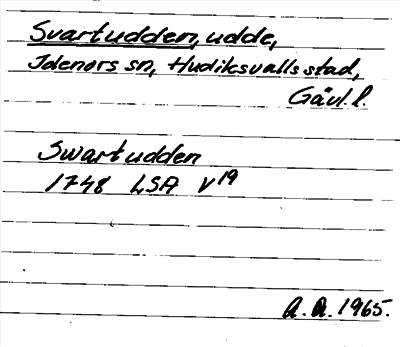 Svartudden, udde,
Idenors sn, Hudiksvalls stad,
Gävl. l.
Swartudden
1748 LSA V19
A. A. 1965.